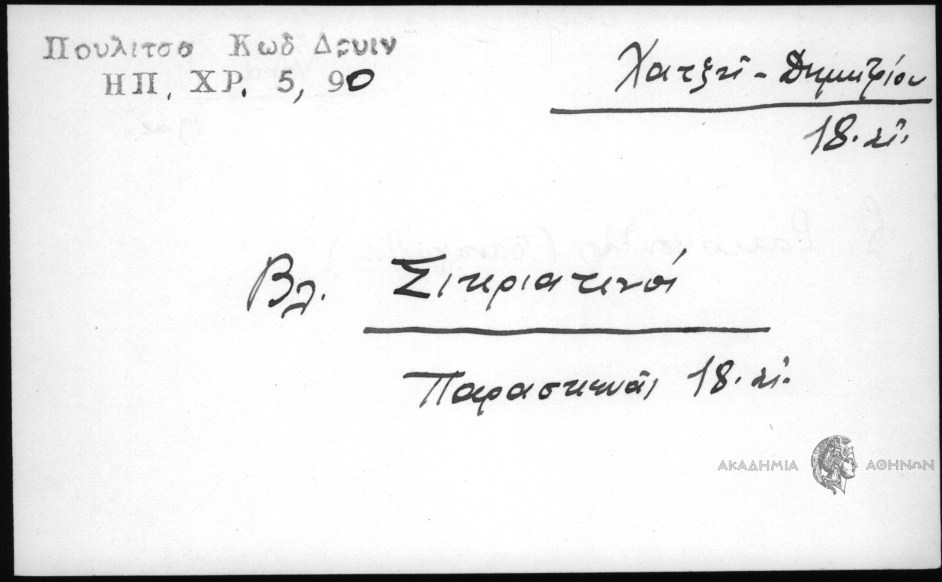 Πουλιτσα Κωδ Δρυιν
ΗΠ. ΧΡ. 5, 90
Χατζῆ - Δημητρίου
18. αἰ.
Βλ. Σιτεριατινοί
Παρασκευᾶς 18. αἰ.
ΑΚΑΔΗΜΙΑ ΑΘΗΝΩΝ